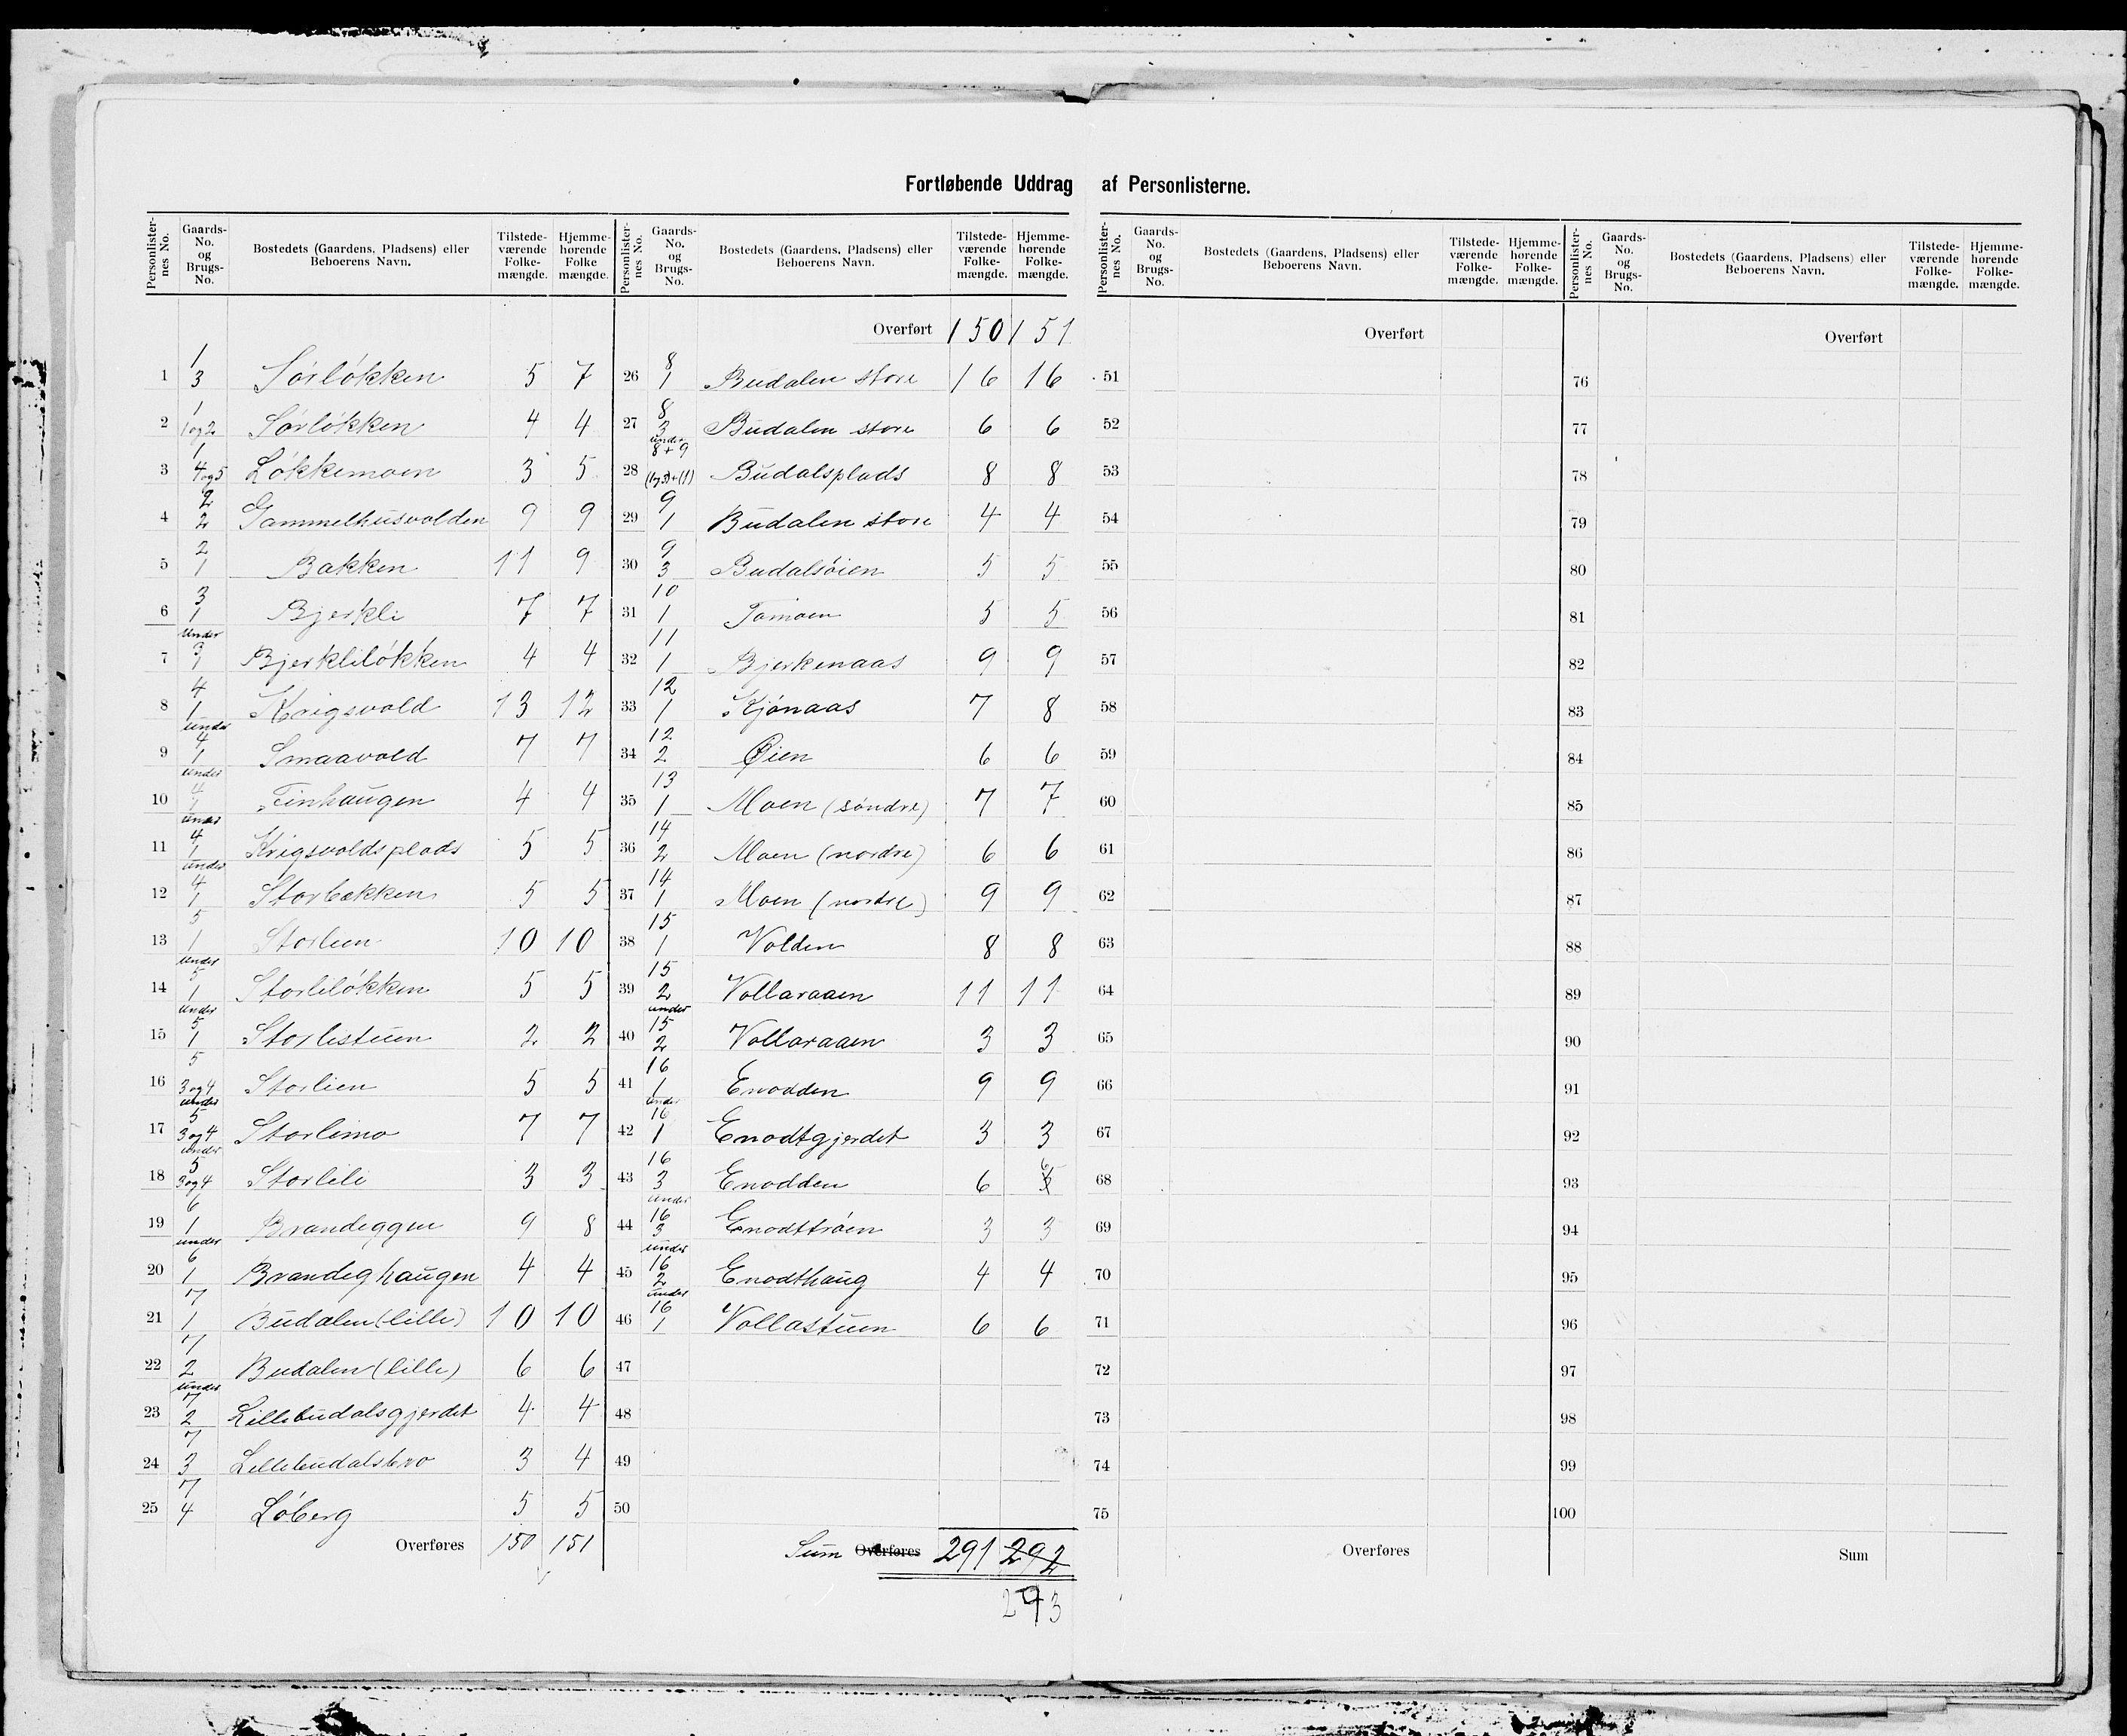 Fortløbende Uddrag af Personlisterne.
Personlister-nes No. Gaards-No. og Brugs-No. Bostedets (Gaardens, Pladsens) eller Beboerens Navn. Tilstede-værende Folke-mængde. Hjemme-hørende Folke mængde.
1 1 3 Sørløkken 5 7
2 1 1og2 Sørløkken 4 4
3 1 4og5 Løkkemoen 3 5
4 2 2 Gammelhusvolden 9 9
5 2 1 Bakken 11 9
6 3 1 Bjerkli 7 7
7 under 3 1 Bjerkliløkken 4 4
8 4 1 Krigsvold 13 12
9 under 4 1 Smaavold 7 7
10 under 4 1 Finhaugen 4 4
11 under 4 1 Krigsvoldsplads 5 5
12 under 4 1 Storbækken 5 5
13 5 1 Storlien 10 10
14 under 5 1 Storliløkken 5 5
15 under 5 1 Storlistuen 2 2
16 5 3og4 Storlien 5 5
17 under 5 3og4 Storlimo 7 7
18 under 5 3og4 Storlili 3 3
19 6 1 Brandeggen 9 8
20 under 6 1 Brandeghaugen 4 4
21 7 1 Budalen (lille) 10 10
22 7 2 Budalen (lille) 6 6
23 under 7 2 Lillebudalsgjerdet 4 4
24 7 3 Lillebudalsbro 3 4
25 7 4 Løberg 5 5
Overføres 150 151
Personlister-nes No. Gaards-No. og Brugs-No. Bostedets (Gaardens, Pladsens) eller Beboerens Navn. Tilstede-værende Folke-mængde. Hjemme-hørende Folke-mængde.
Overført 150 151
26 8 1 Budalen store 16 16
27 8 3 Budalen store 6 6
28 under 8+9 (1og3)+(1) Budalsplads 8 8
29 9 1 Budalen store 4 4
30 9 3 Budalsøien 5 5
31 10 1 Tomoen 5 5
32 11 1 Bjerkenaas 9 9
33 12 1 Kjønaas 7 8
34 12 2 Øien 6 6
35 13 1 Moen (søndre) 7 7
36 14 2 Moen (nordre) 6 6
37 14 1 Moen (nordre) 9 9
38 15 1 Volden 8 8
39 15 2 Vollaraaen 11 11
40 under 15 2 Vollaraaen 3 3
41 16 1 Enodden 9 9
42 under 16 1 Enodtgjerdet 3 3
43 16 3 Enodden 6 6 5
44 under 16 3 Enodttrøen 3 3
45 under 16 2 Enodthaug 4 4
46 under 16 1 Vollastuen 6 6
47
48
49
50
Sum Overføres 291 292
293
Personlister-nes No. Gaards-No. og Brugs-No. Bostedets (Gaardens, Pladsens) eller Beboerens Navn. Tilstede-værende Folke-mængde. Hjemme-hørende Folke-mængde.
Overført
51
52
53
54
55
56
57
58
59
60
61
62
63
64
65
66
67
68
69
70
71
72
73
74
75
Overføres
Personlister-nes No. Gaards-No. og Brugs-No. Bostedets (Gaardens, Pladsens) eller Beboerens Navn. Tilstede-værende Folke-mængde. Hjemme-hørende Folke-mængde.
Overført
76
77
78
79
80
81
82
83
84
85
86
87
88
89
90
91
92
93
94
95
96
97
98
99
100
Sum